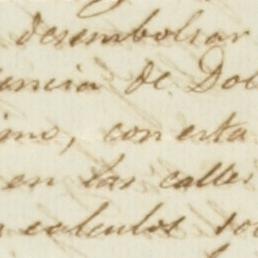 desembolsar
encia de Dol
imo, con esta
en las calles
calculos so